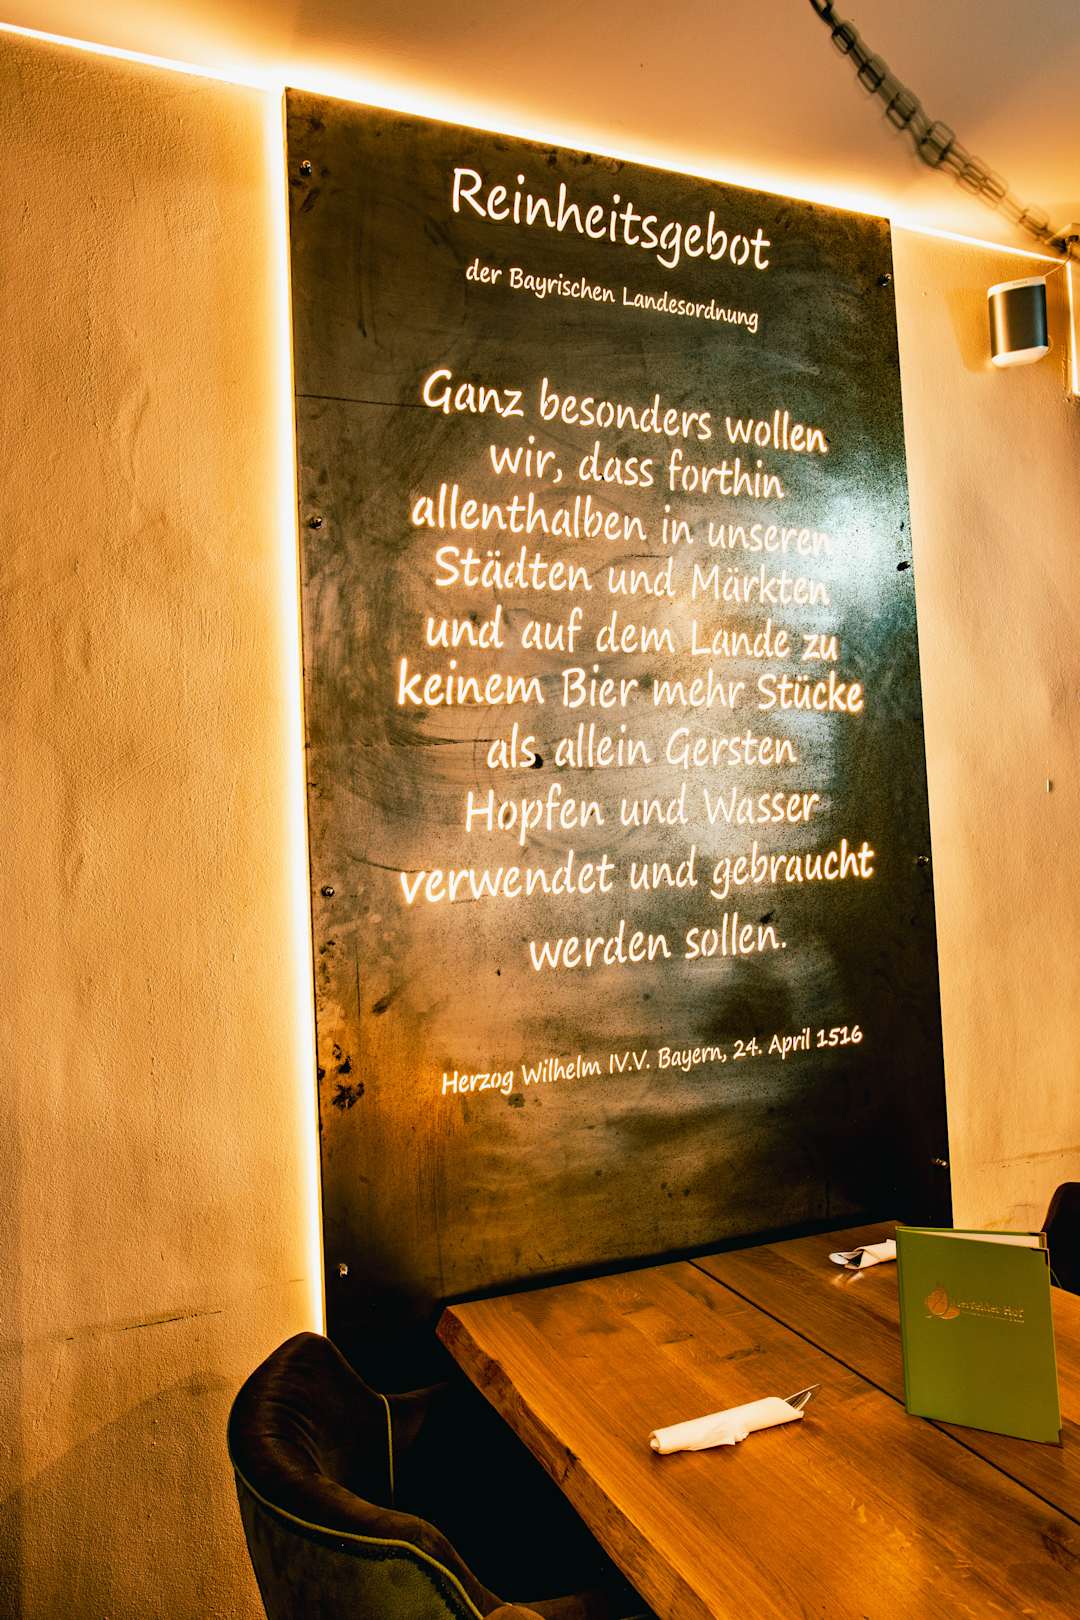 Reinheitsgebot
der Bayrischen Landesordnung
Ganz besonders wollen
wir, dass forthin
allenthalben in unseren
Städten und Märkten
und auf dem Lande zu
keinem Bier mehr Stücke
als allein Gersten
Hopfen und Wasser
verwendet und gebraucht
werden sollen.
Herzog Wilhelm IV.V. Bayern, 24. April 1516
Hof